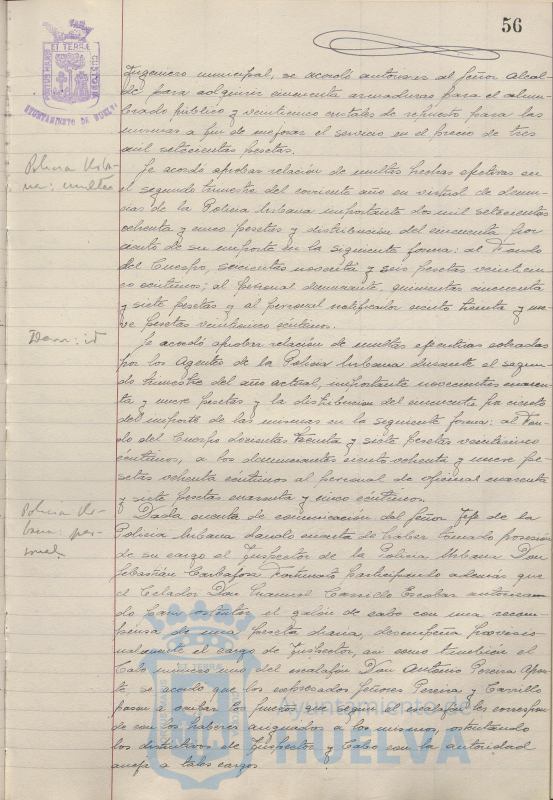 56
AYUNTAMIENTO DE HUELVA
Ingeniero municipal, se acordó autorizar al Señor Alcal-
de para adquirir cincuenta armaduras para el alum-
brado público y veinticinco cristales de repuesto para las
mismas a fin de mejorar el servicio en el precio de tres
mil setecientas pesetas.
Policia Urba-
na: multas
Se acordó aprobar relación de multas hechas efectivas en
el segundo trimestre del corriente año en virtud de denun-
cias de la Policia Urbana importante dos mil setecientas
ochenta y cinco pesetas y distribucion del cincuenta por
ciento de su importe en la siguiente forma: al Fondo
del Cuerpo, seiscientas noventa y seis pesetas veinticin-
co centimos; al personal denunciante, quinientas cincuenta
y siete pesetas y al personal notificador ciento treinta y nue-
ve pesetas veinticinco centimos.
Idem: id
Se acordó aprobar relación de multas efectivas cobradas
por los Agentes de la Policia Urbana durante el segun-
do trimestre del año actual, importante novecientas cuaren-
ta y nueve pesetas y la distribucion del cincuenta por ciento
del importe de las mismas en la siguiente forma: al Fon-
do del Cuerpo doscientas treinta y siete pesetas veinticinco
centimos, a los denunciantes ciento ochenta y nueve pe-
setas ochenta centimos al personal de oficinas cuarenta
y siete pesetas cuarenta y cinco centimos.
Policia Ur-
bana: per-
sonal
Dada cuenta de comunicación del Señor Jefe de la
Policia Urbana dando cuenta de haber tomado posesión
de su cargo el Inspector de la Policia Urbana Don
Sebastián Carbajosa Fortunato participando además que
el Celador Don Manuel Carrillo Escobar autoriza-
do para ostentar el galón de cabo con una recom-
pensa de una peseta diaria, desempeña provisio-
nalmente el cargo de Inspector, asi como tambien el
Cabo número uno del escalafón Don Antonio Pereira
se acordó que los expresados señores Pereira y Carrillo
pasen a ocupar los puestos que segun el escalafón les correspon-
de con los haberes asignados a los mismos, ostentando
los distintivos de Inspector y Cabo con la autoridad
aneja a tales cargos.
Ayuntamiento de
HUELVA